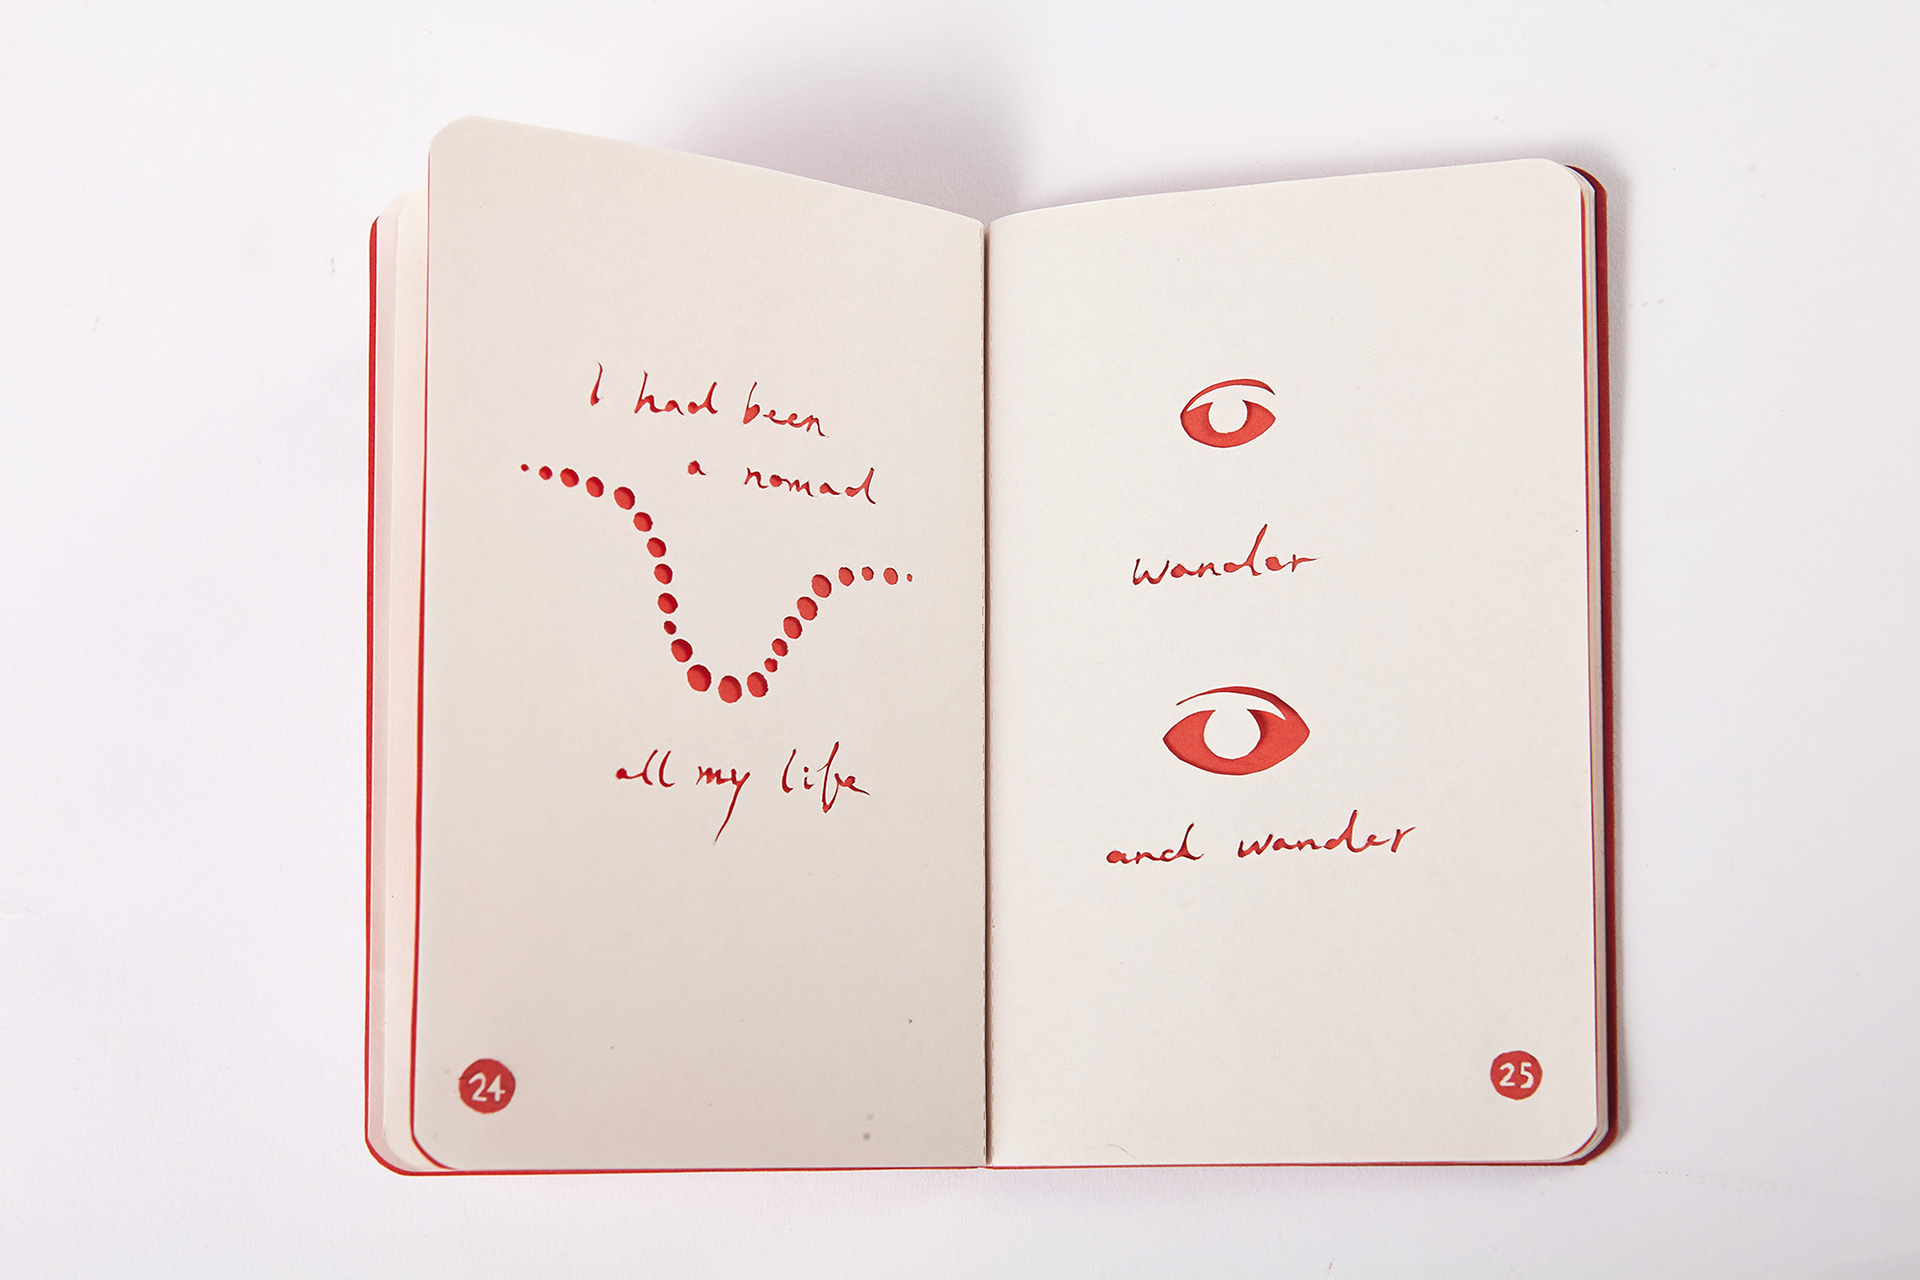 I had been
a nomad
all my life
24
wander
and wander
25